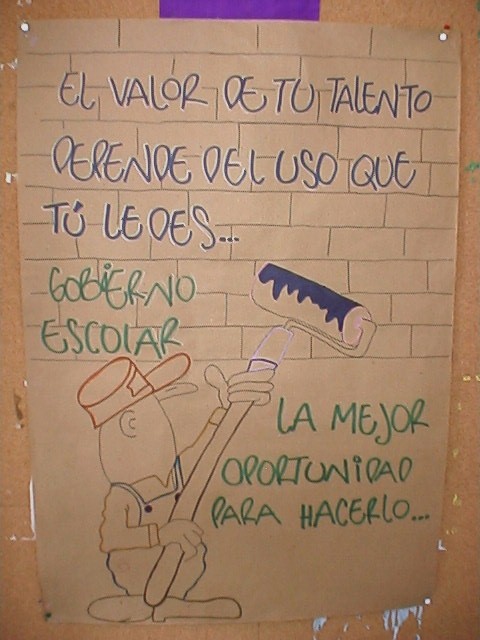 EL VALOR DE TU TALENTO
DEPENDE DEL USO QUE
TÚ LE DES...
GOBIERNO
ESCOLAR
LA MEJOR
OPORTUNIDAD
PARA HACERLO...